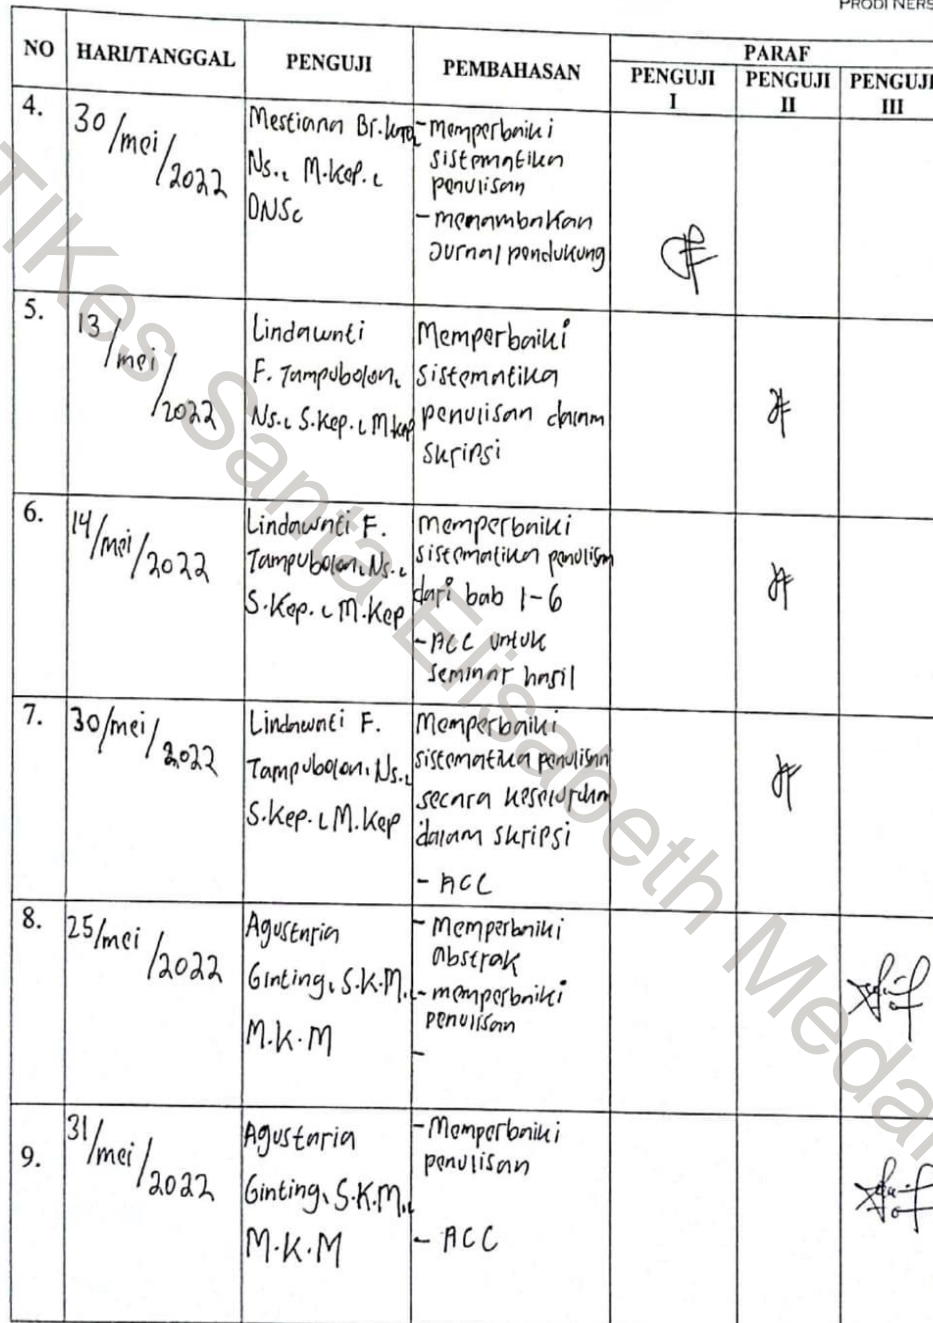 PRODI NERS
NO HARI/TANGGAL PENGUJI PEMBAHASAN PARAF
PENGUJI I PENGUJI II PENGUJI III
4. 30/mei/2022
Mestiana Br.
Ns., M.Kep.,
DNSc
- Memperbaiki
sistematika
penulisan
- menambakan
Jurnal pendukung
5. 13/mei/2022
Lindawati
F. Tampubolon,
Ns., S.Kep., M.kep
Memperbaiki
sistematika
penulisan dalam
skripsi
6. 14/mei/2022
Lindawati F.
Tampubolon, Ns.,
S.Kep., M.Kep
Memperbaiki
sistematika penulisan
dari bab 1-6
- ACC untuk
seminar hasil
7. 30/mei/2022
Lindawati F.
Tampubolon, Ns.,
S.Kep., M.Kep
Memperbaiki
sistematika penulisan
secara keseluruhan
dalam skripsi
- ACC
8. 25/mei/2022
Agustaria
Ginting, S.K.M.,
M.K.M
- Memperbaiki
abstrak
- memperbaiki
penulisan
-
9. 31/mei/2022
Agustaria
Ginting, S.K.M.,
M.K.M
- Memperbaiki
penulisan
- ACC
TIKes Santa Elisabeth Medan